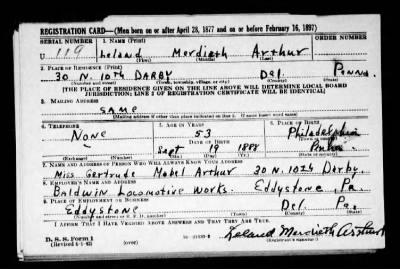 REGISTRATION CARD—(Men born on or after April 28, 1877 and on or before February 16, 1897)
SERIAL NUMBER 1. NAME (Print) ORDER NUMBER
U 119 Leland Merdieth Arthur
(First) (Middle) (Last)
2. PLACE OF RESIDENCE (Print)
30 N. 10th DARBY Del. Penna.
(Number and street) (Town, township, village, or city) (County) (State)
[THE PLACE OF RESIDENCE GIVEN ON THE LINE ABOVE WILL DETERMINE LOCAL BOARD
JURISDICTION; LINE 2 OF REGISTRATION CERTIFICATE WILL BE IDENTICAL]
3. MAILING ADDRESS
SAME
[Mailing address if other than place indicated on line 2. If same insert word same]
4. TELEPHONE 5. AGE IN YEARS 6. PLACE OF BIRTH
None 53 Philadelphia
DATE OF BIRTH
Sept 19 1888 Penna.
(Exchange) (Number) (Mo.) (Day) (Yr.) (State or country)
7. NAME AND ADDRESS OF PERSON WHO WILL ALWAYS KNOW YOUR ADDRESS
Miss Gertrude Mabel Arthur 30 N. 10th Darby.
8. EMPLOYER'S NAME AND ADDRESS
Baldwin Locomotive Works. Eddystone, Pa.
9. PLACE OF EMPLOYMENT OR BUSINESS
Eddystone Del. Pa.
(Number and street or R. F. D. number) (Town) (County) (State)
I AFFIRM THAT I HAVE VERIFIED ABOVE ANSWERS AND THAT THEY ARE TRUE.
D. S. S. Form 1 Leland Merdieth Arthur
(Revised 4-1-42) (over) (Registrant's signature)